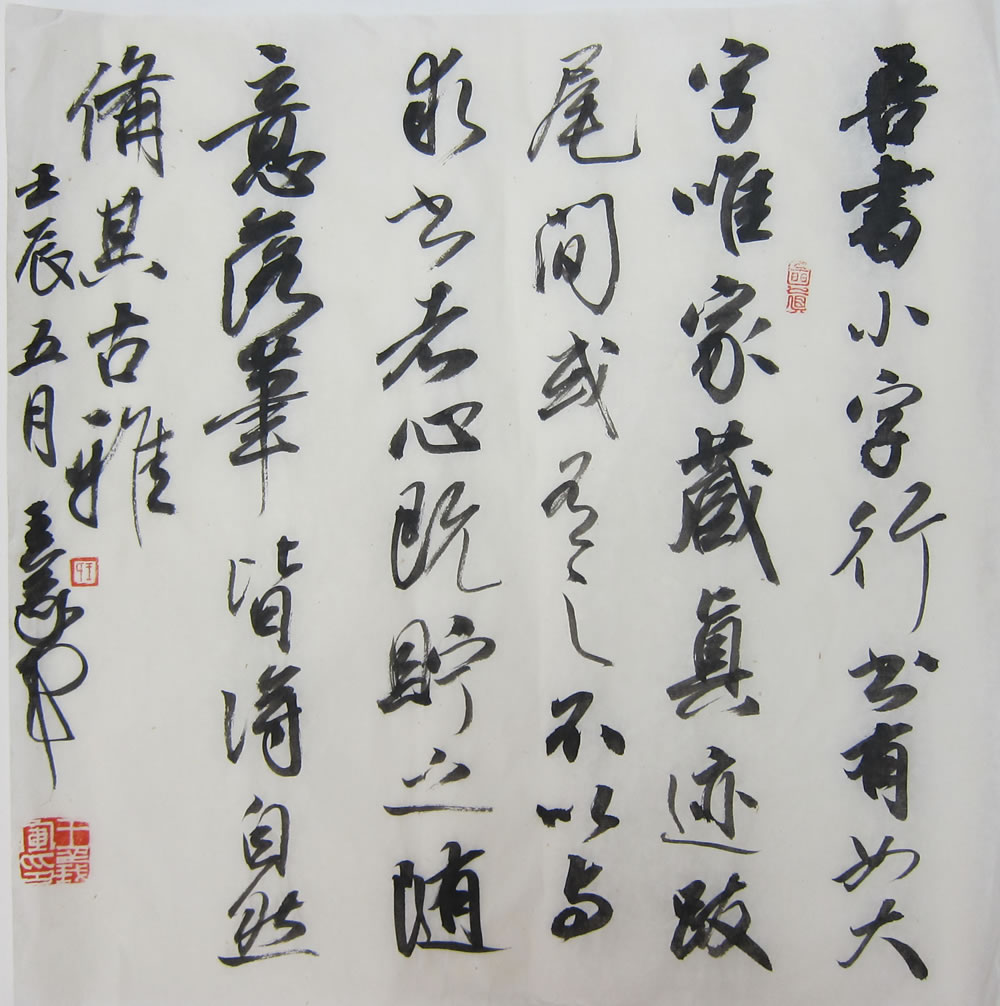 吾书小字行书有如大
字唯家藏真迹跋
尾间或有之不以与
求书者心既贮之随
意落笔皆得自然
备其古雅
壬辰五月
王义军